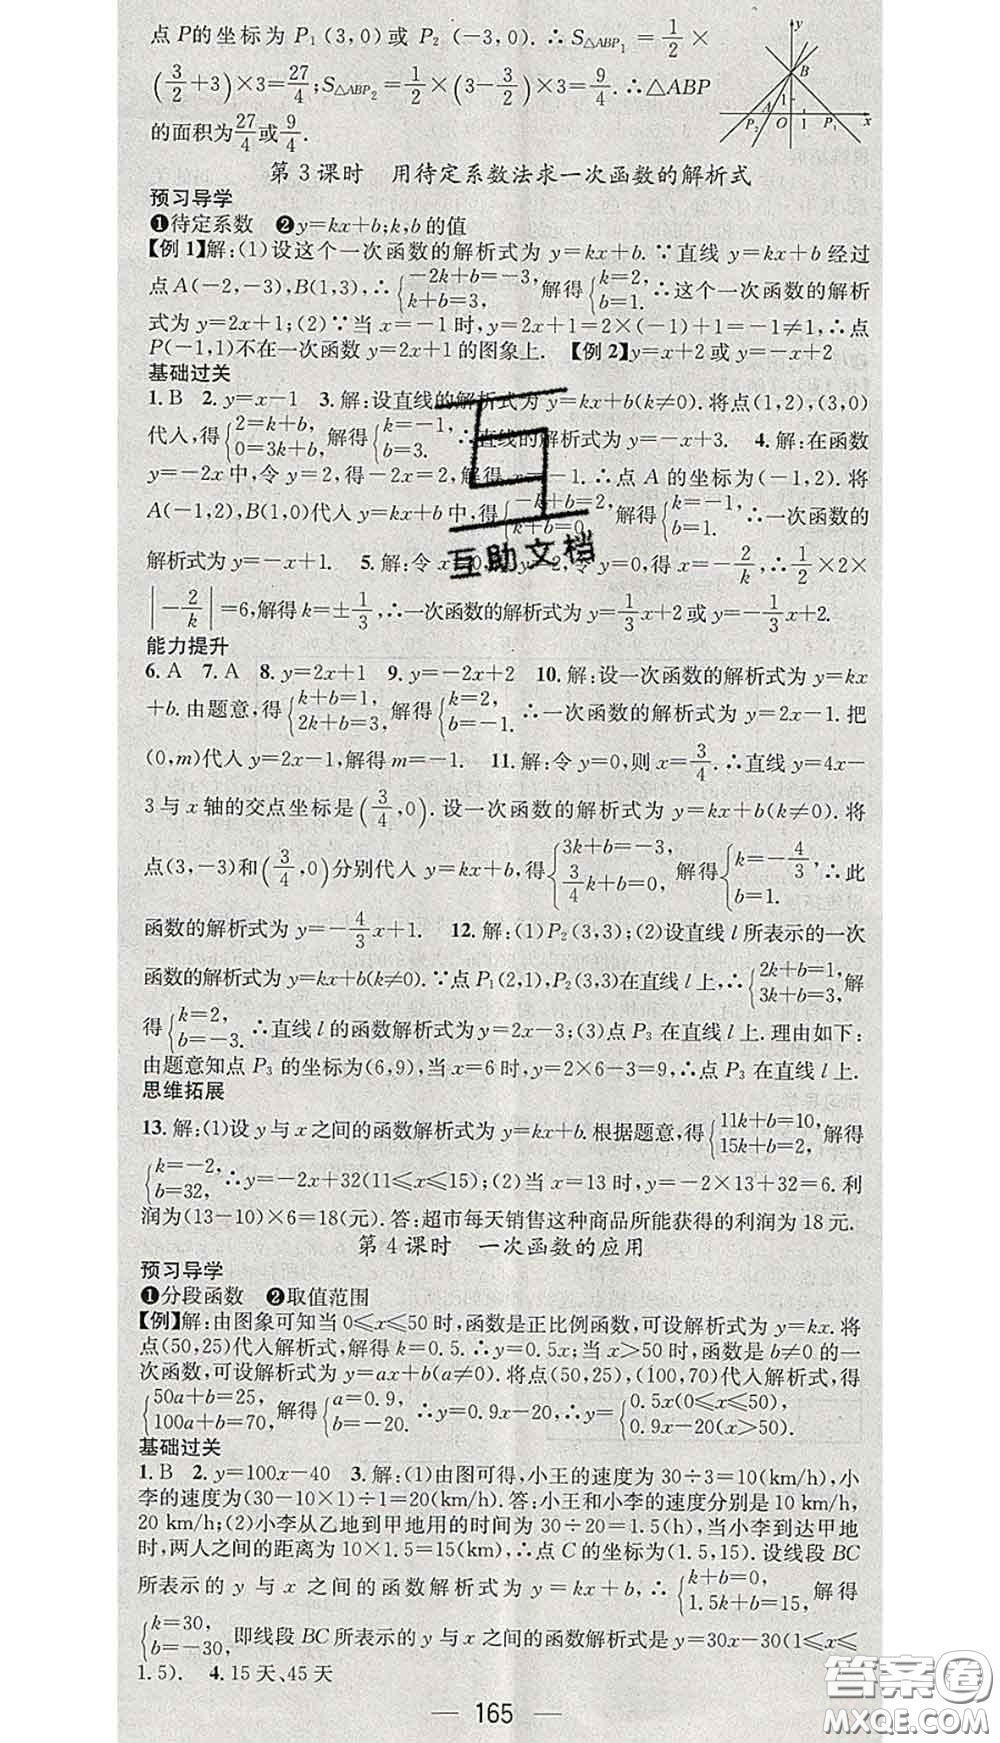 点P的坐标为 P₁(3,0)或 P₂(-3,0).∴S△ABP₁=1/2×
(3/2+3)×3=27/4;S△ABP₂=1/2×(3-3/2)×3=9/4.∴△ABP
的面积为27/4或9/4.
y
B
A
1
P₂ O 1 P₁ x
第3课时 用待定系数法求一次函数的解析式
预习导学
❶待定系数 ❷y=kx+b;k,b的值
【例1】解:(1)设这个一次函数的解析式为 y=kx+b.∵直线 y=kx+b 经过
点A(-2,-3),B(1,3),∴{-2k+b=-3,k+b=3,解得{k=2,b=1.∴这个一次函数的解析
式为 y=2x+1;(2)∵当 x=-1时,y=2x+1=2×(-1)+1=-1≠1,∴点
P(-1,1)不在一次函数 y=2x+1的图象上. 【例2】y=x+2或y=-x+2
基础过关
1.B 2.y=x-1 3.解:设直线的解析式为 y=kx+b(k≠0).将点(1,2),(3,0)
代入,得{2=k+b,0=3k+b,解得{k=-1,b=3.∴直线的解析式为y=-x+3. 4.解:在函数
y=-2x中,令 y=2,得-2x=2,解得 x=-1.∴点 A 的坐标为(-1,2).将
A(-1,2),B(1,0)代入 y=kx+b中,得{-k+b=2,k+b=0,解得{k=-1,b=1.∴一次函数的
解析式为y=-x+1. 5.解:令 x=0,得y=2,令 y=0,得 x=-2/k,∴1/2×2×
|-2/k|=6,解得k=±1/3,∴一次函数的解析式为 y=1/3x+2或y=-1/3x+2.
能力提升
6.A 7.A 8.y=2x+1 9.y=-2x+2 10.解:设一次函数的解析式为 y=kx
+b.由题意,得{k+b=1,2k+b=3,解得{k=2,b=-1.∴一次函数的解析式为 y=2x-1.把
(0,m)代入 y=2x-1,解得 m=-1. 11.解:令 y=0,则 x=3/4.∴直线 y=4x-
3与 x 轴的交点坐标是(3/4,0).设一次函数的解析式为 y=kx+b(k≠0).将
点(3,-3)和(3/4,0)分别代入 y=kx+b,得{3k+b=-3,3/4k+b=0,解得{k=-4/3,b=1.∴此
函数的解析式为 y=-4/3x+1. 12.解:(1)P₂(3,3);(2)设直线 l 所表示的一次
函数的解析式为 y=kx+b(k≠0).∵点 P₁(2,1),P₂(3,3)在直线 l 上,∴{2k+b=1,3k+b=3,解
得{k=2,b=-3.∴直线 l 的函数解析式为 y=2x-3;(3)点 P₃ 在直线 l 上.理由如下:
由题意知点 P₃ 的坐标为(6,9),当 x=6 时,y=2×6-3=9,∴点 P₃ 在直线 l 上.
思维拓展
13.解:(1)设 y 与 x 之间的函数解析式为 y=kx+b.根据题意,得{11k+b=10,15k+b=2,解得
{k=-2,b=32,∴y=-2x+32(11≤x≤15);(2)当 x=13 时,y=-2×13+32=6.利
润为(13-10)×6=18(元).答:超市每天销售这种商品所能获得的利润为18元.
第4课时 一次函数的应用
预习导学
❶分段函数 ❷取值范围
【例】解:由图象可知当0≤x≤50时,函数是正比例函数,可设解析式为 y=kx.将
点(50,25)代入解析式,解得 k=0.5.∴y=0.5x;当 x>50 时,函数是 b≠0 的一
次函数,可设解析式为 y=ax+b(a≠0).将点(50,25),(100,70)代入解析式,得
{50a+b=25,100a+b=70,解得{a=0.9,b=-20,∴y=0.9x-20,∴y={0.5x(0≤x≤50),0.9x-20(x>50).
基础过关
1.B 2.y=100x-40 3.解:(1)由图可得,小王的速度为30÷3=10(km/h),小
李的速度为(30-10×1)÷1=20(km/h).答:小王和小李的速度分别是10 km/h,
20 km/h;(2)小李从乙地到甲地用的时间为30÷20=1.5(h),当小李到达甲地
时,两人之间的距离为10×1.5=15(km),∴点 C 的坐标为(1.5,15).设线段 BC
所表示的 y 与 x 之间的函数解析式为 y=kx+b,∴{k+b=0,1.5k+b=15,解得
{k=30,b=-30,即线段 BC 所表示的 y 与 x 之间的函数解析式是 y=30x-30(1≤x≤
1.5). 4.15天、45天
165
互助文档
答案圈
MXQE.COM